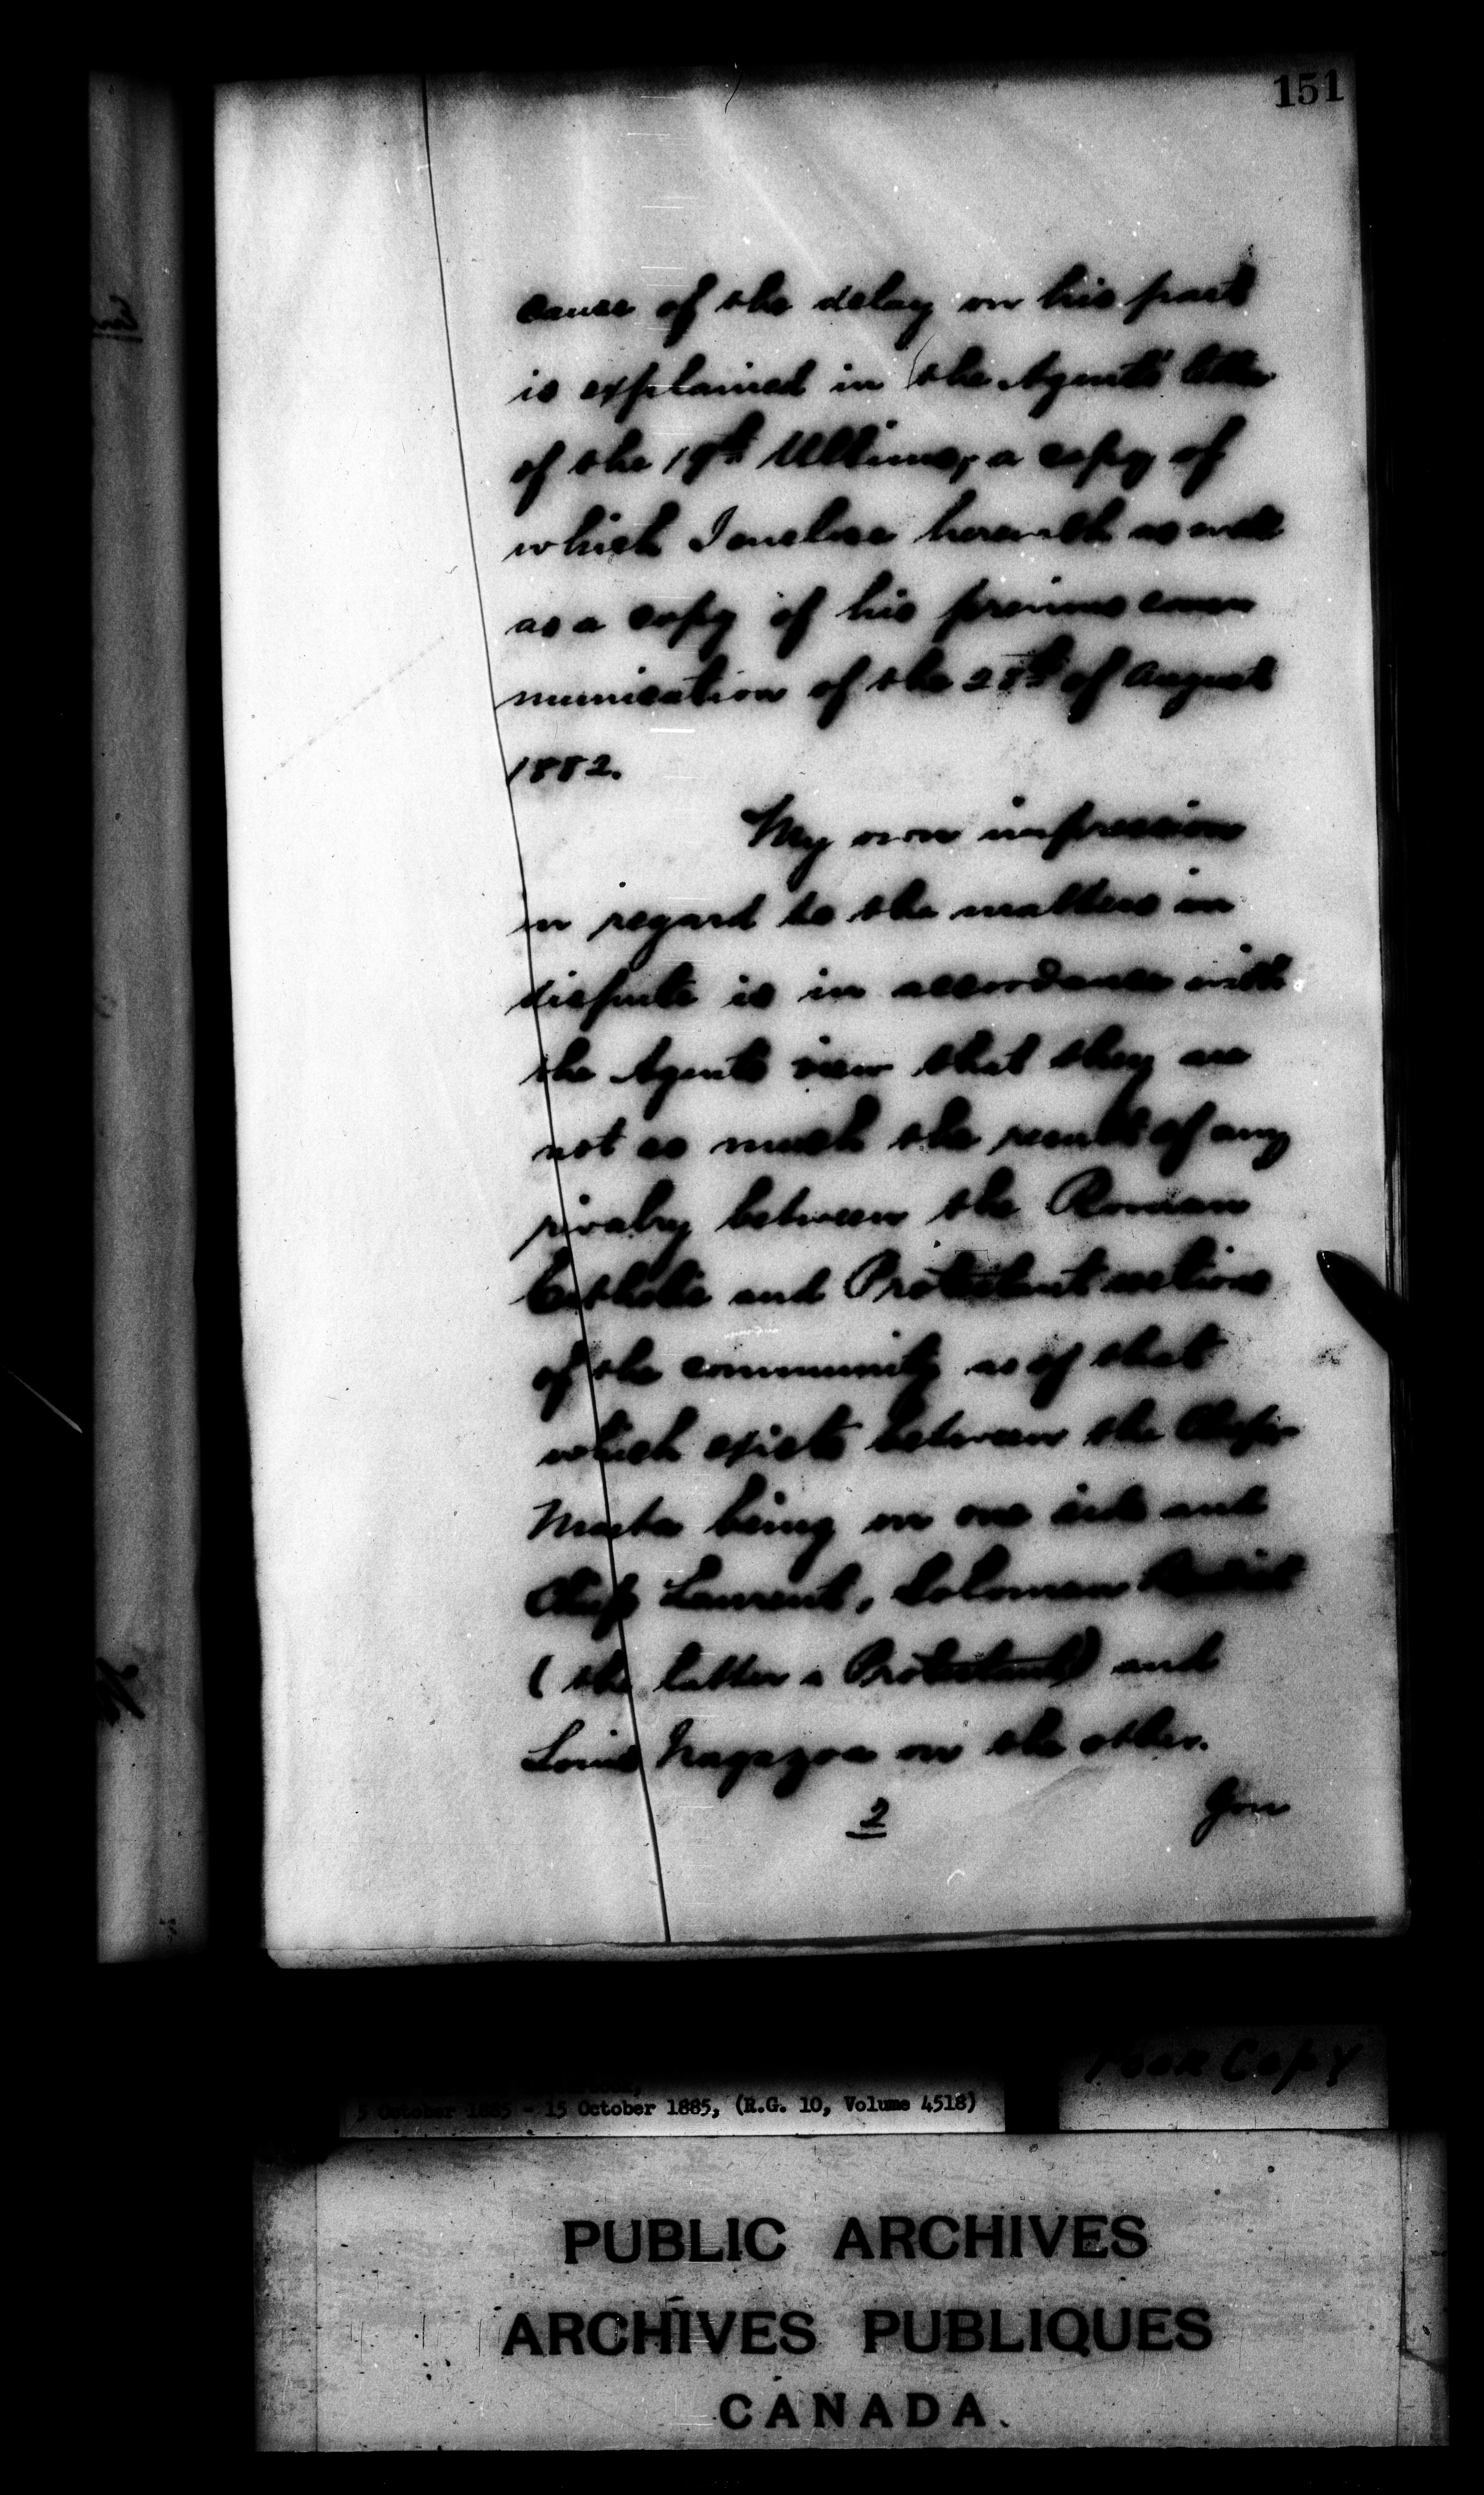 151
cause of the delay on his part
is explained in the Agents' letter
of the 19th Ultimo, a copy of
which I enclose herewith as well
as a copy of his previous com
munication of the 28th of August
1882.
My own impression
in regard to the matters in
dispute is in accordance with
the Agents view that they are
not so much the result of any
rivalry between the Roman
Catholic and Protestant sections
of the community as of that
which exists between the Chiefs
Masta being on one side and
Chiefs Laurent, Solomon Benedict
(the latter a Protestant) and
Louis Nagazoa on the other.
2
You
Poor Copy
5 October 1885 - 15 October 1885, (R.G. 10, Volume 4518)
PUBLIC ARCHIVES
ARCHIVES PUBLIQUES
CANADA